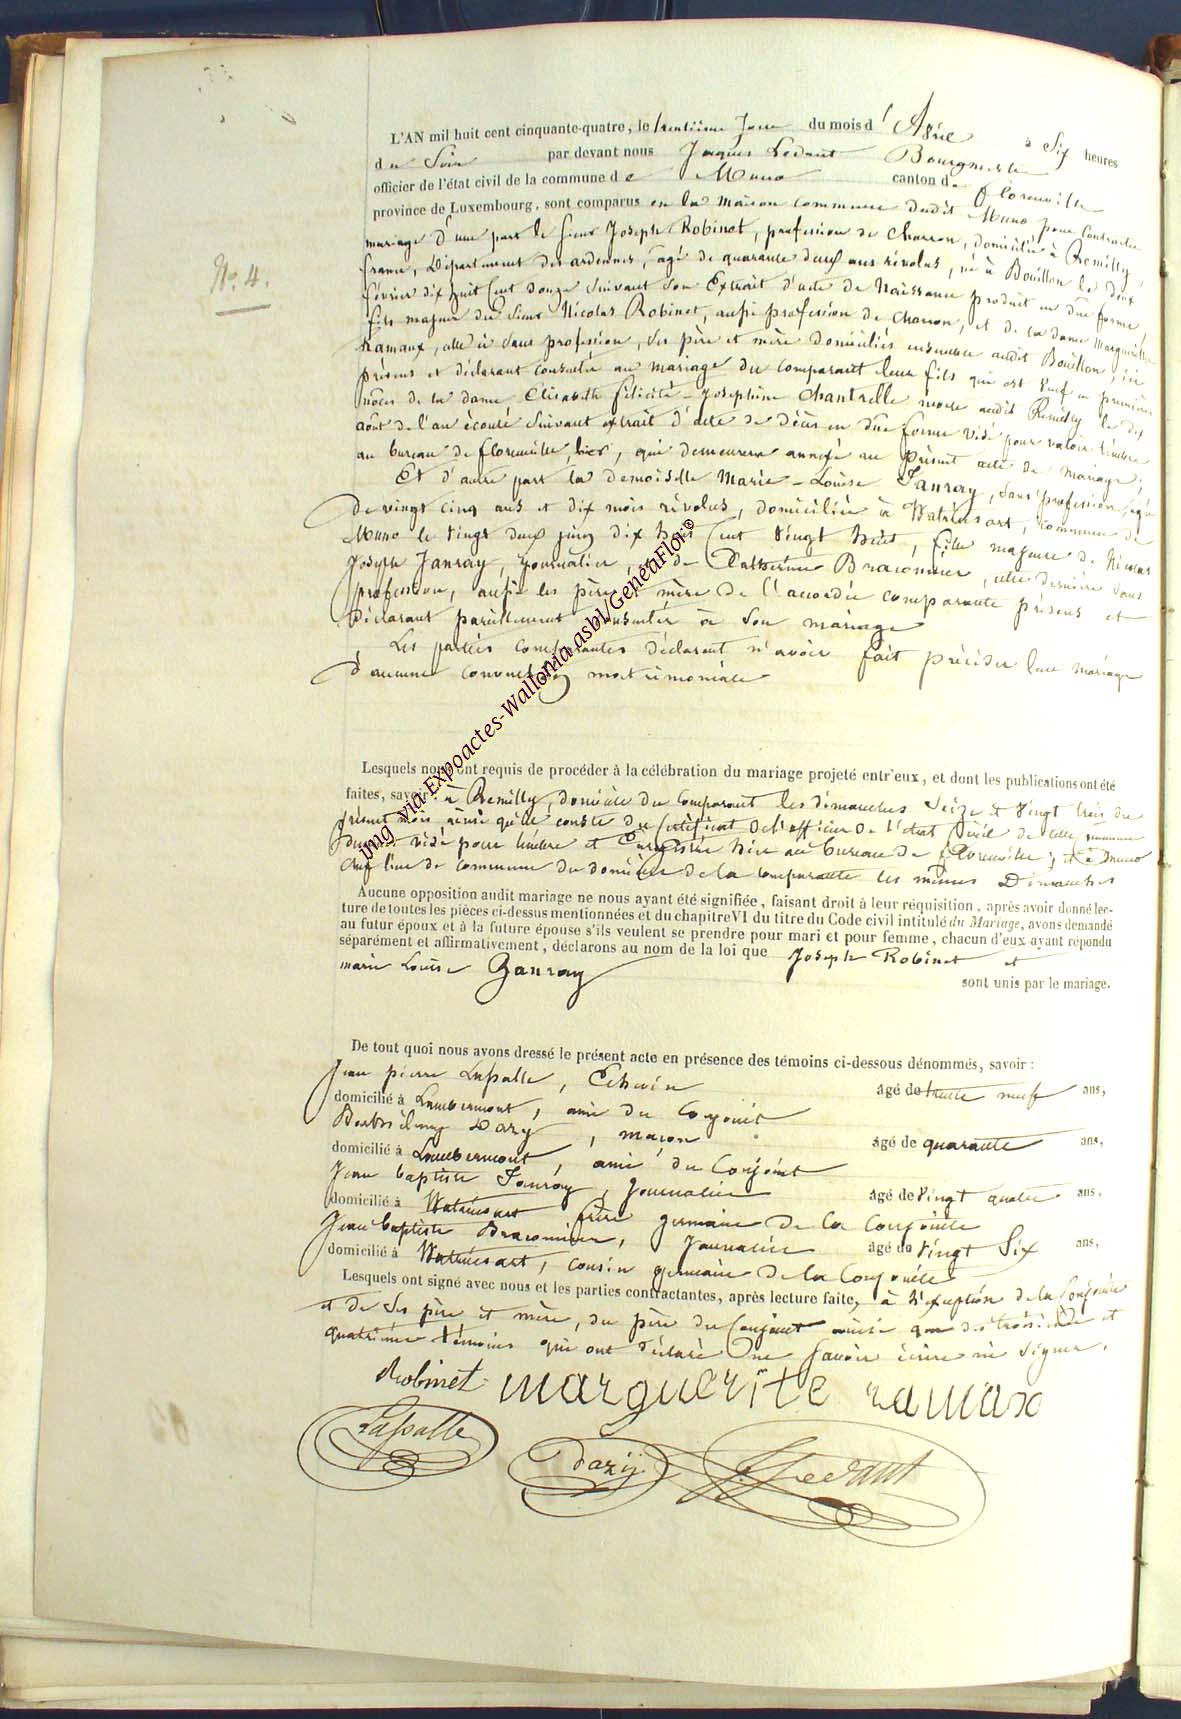 No. 4.
L'AN mil huit cent cinquante-quatre, le trentième Jour du mois d'Avril à Six heures
du Soir par devant nous Jacques Ledant Bourgmestre
officier de l'état civil de la commune de Muno canton de florenville
province de Luxembourg, sont comparus en la maison commune dudit Muno pour Contracter
mariage d'une part le Sieur Joseph Robinet, profession de charron, domicilié à Remilly,
france, Département des ardennes, agé de quarante deux ans révolus, né à Bouillon le deux
février dix huit Cent douze Suivant Son Extrait d'acte de Naissance produit en due forme
fils majeur du Sieur Nicolas Robinet, aussi profession de charron, et de la dame Marguerite
Ramaux, elle ci Sans profession, Ses père et mère domiciliés ensemble audit Bouillon, ici
présens et déclarant consentir au mariage du comparant leur fils qui est Veuf en premières
nôces de la dame Elisabeth félicité-Joséphine Chantrelle morte audit Remilly le dix
août de l'an écoulé Suivant extrait d'acte de décès en due forme Visé pour valoir timbre
au bureau de florenville, hier, qui demeurera annexé au présent acte de mariage;
Et d'autre part la demoiselle Marie-Louise Janray, Sans profession, agée
de vingt cinq ans et dix mois révolus, domiciliée à Watrinsart, commune de
Muno le Vingt deux juin dix huit Cent Vingt huit, fille majeure de Nicolas
Joseph Janray, journalier, et de Catherine Braconnier, cette dernière Sans
profession, aussi les père et mère de l'accordée comparante présens et
Déclarant pareillement consentir à Son mariage
Les parties comparantes déclarent n'avoir fait précéder leur mariage
d'aucune convention matrimoniale
Lesquels nous ont requis de procéder à la célébration du mariage projeté entr'eux, et dont les publications ont été
faites, savoir: à Remilly, domicile du Comparant les dimanches Seize et Vingt trois du
présent mois ainsi qu'il conste du Certificat de l'officier de l'état Civil de cette commune
Visé pour timbre et Enregistré hier au bureau de florenville; et à Muno
chef lieu de commune du domicile de la comparante les mêmes Dimanches
Aucune opposition audit mariage ne nous ayant été signifiée, faisant droit à leur réquisition, après avoir donné lec-
ture de toutes les pièces ci-dessus mentionnées et du chapitre VI du titre du Code civil intitulé du Mariage, avons demandé
au futur époux et à la future épouse s'ils veulent se prendre pour mari et pour femme, chacun d'eux ayant répondu
séparément et affirmativement, déclarons au nom de la loi que Joseph Robinet et
marie Louise Janray sont unis par le mariage.
De tout quoi nous avons dressé le présent acte en présence des témoins ci-dessous dénommés, savoir:
Jean pierre Lassalle, Echevin agé de trente neuf ans,
domicilié à Lambermont, ami du Conjoint
Dazy, maçon agé de quarante ans,
domicilié à Lambermont, ami du Conjoint
Jean baptiste Janray, Journalier agé de Vingt quatre ans,
domicilié à Watrinsart frère germain de la Conjointe
Jean baptiste Braconnier, Journalier agé de Vingt Six ans,
domicilié à Watrinsart, cousin germain de la Conjointe
Lesquels ont signé avec nous et les parties contractantes, après lecture faite, à l'exception de la Conjointe
et de Ses père et mère, du père du Conjoint ainsi que des troisième et
quatrième témoins qui ont déclaré ne Savoir écrire ni Signer.
Robinet marguerite ramax
Lassalle
Dazij JJ Ledant
img via Expoactes-Wallonia asbl/GeneaFlor©